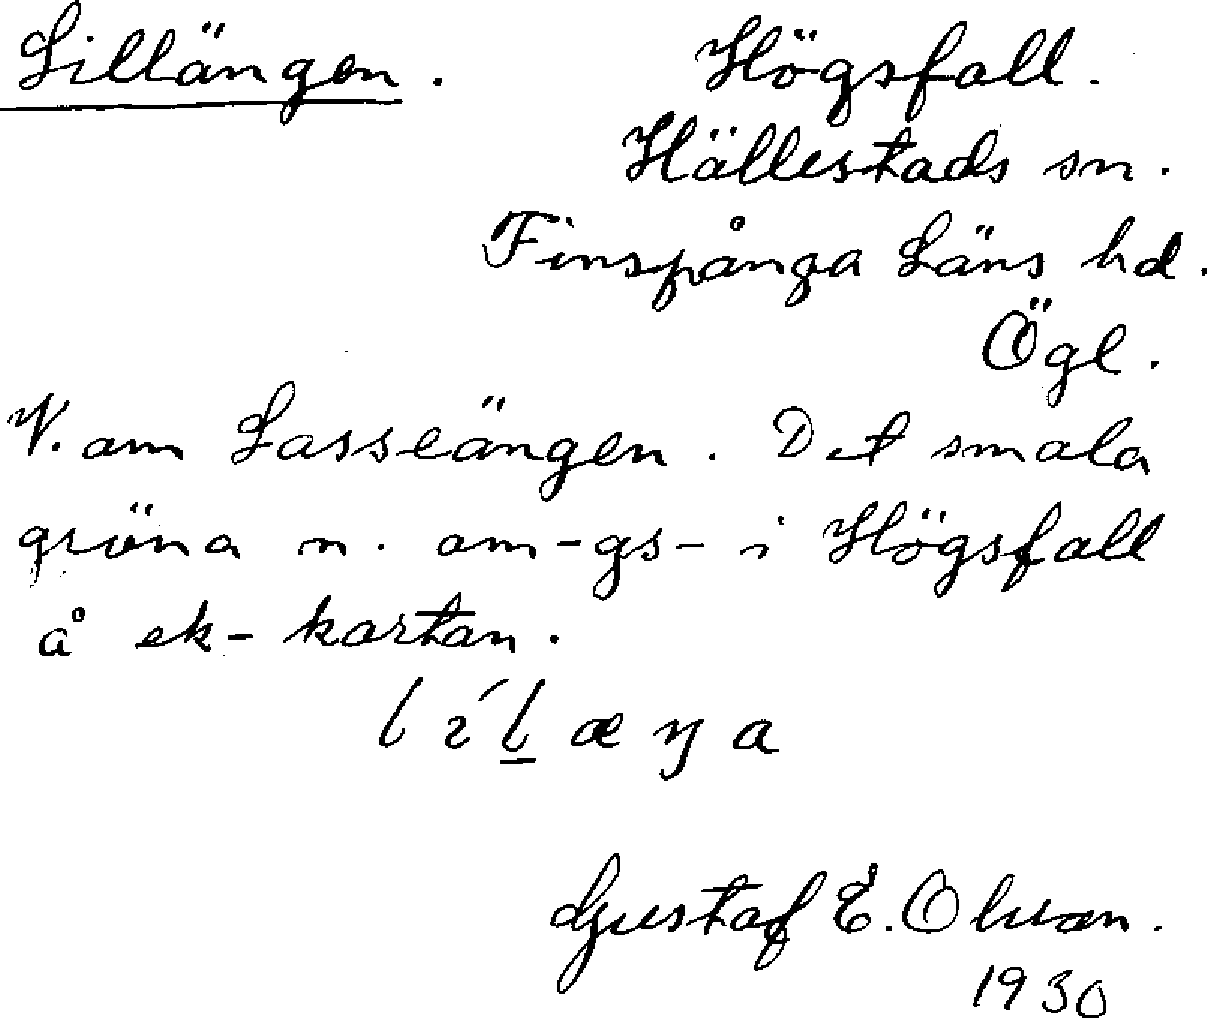 Lillängen. Högsfall.
Hällestads sn.
Finspånga Läns hd.
Ögl.
V. om Lasseängen. Det smala
gröna n. om -gs- i Högsfall
å ek-kartan.
Gustaf E. Olsson.
1930